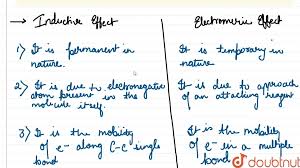 → Inductive Effect
Electromeric Effect
1) It is permanent in
nature.
It is temporary in
nature
2) It is due to electronegative
atom present in the
molecule itself.
It is due to approach
of an attacking reagent
3) It is the mobility
of e- along C-C single
bond
It is the mobility
of e- in a multiple
bond
doubtnut